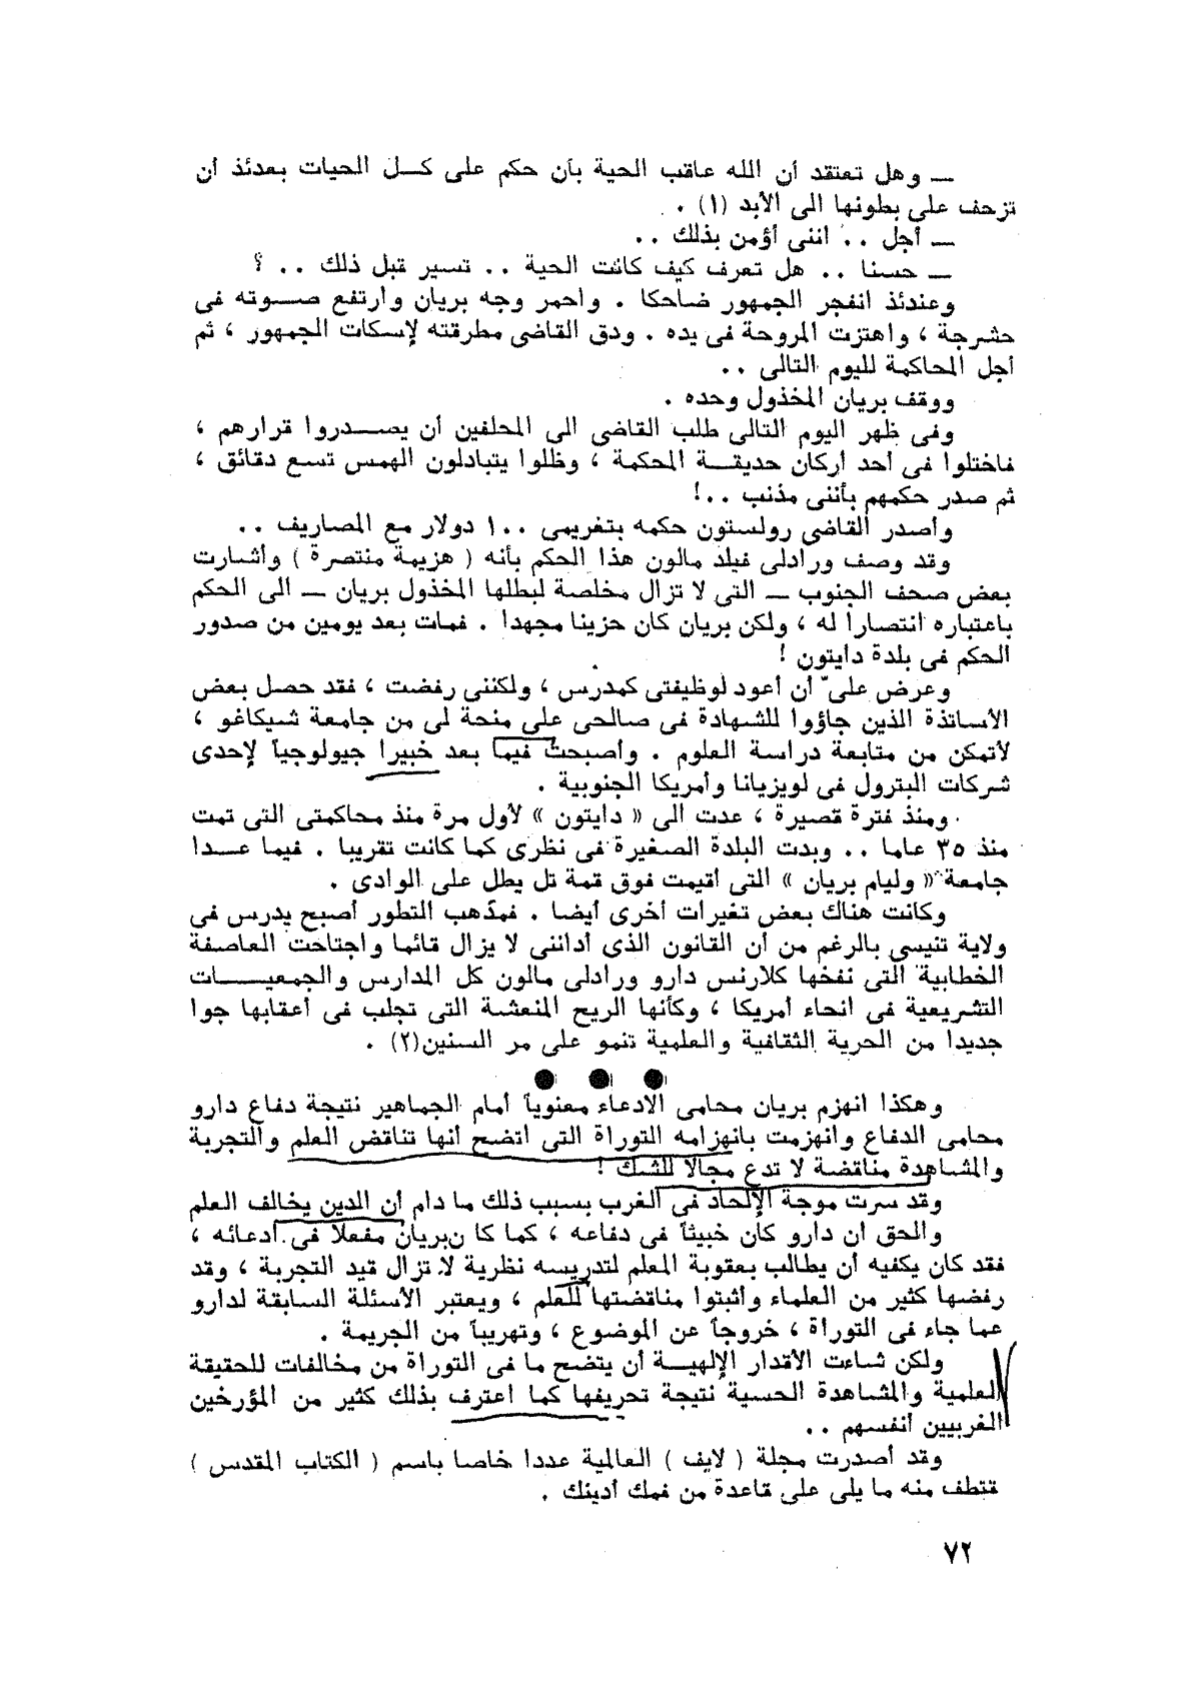 — وهل تعتقد أن الله عاقب الحية بأن حكم على كـل الحيات بعدئذ أن
تزحف على بطونها الى الأبد (١) .
— أجل .. اننى أؤمن بذلك ..
— حسنا .. هل تعرف كيف كانت الحية .. تسير قبل ذلك .. ؟
وعندئذ انفجر الجمهور ضاحكا . واحمر وجه بريان وارتفع صـوته فى
حشرجة ، واهتزت المروحة فى يده . ودق القاضى مطرقته لإسكات الجمهور ، ثم
أجل المحاكمة لليوم التالى ..
ووقف بريان المخذول وحده .
وفى ظهر اليوم التالى طلب القاضى الى المحلفين أن يصـدروا قرارهم ،
فاختلوا فى أحد أركان حديقـة المحكمة ، وظلوا يتبادلون الهمس تسع دقائق ،
ثم صدر حكمهم بأننى مذنب ..!
وأصدر القاضى رولستون حكمه بتغريمى ١٠٠ دولار مع المصاريف ..
وقد وصف ورادلى فيلد مالون هذا الحكم بأنه ( هزيمة منتصرة ) وأشارت
بعض صحف الجنوب — التى لا تزال مخلصة لبطلها المخذول بريان — الى الحكم
باعتباره انتصاراً له ، ولكن بريان كان حزينا مجهدا . فمات بعد يومين من صدور
الحكم فى بلدة دايتون !
وعرض علىّ أن أعود لوظيفتى كمدرس ، ولكننى رفضت ، فقد حصل بعض
الأساتذة الذين جاؤوا للشهادة فى صالحى على منحة لى من جامعة شيكاغو ،
لأتمكن من متابعة دراسة العلوم . وأصبحت فيما بعد خبيرا جيولوجياً لإحدى
شركات البترول فى لويزيانا وأمريكا الجنوبية .
ومنذ فترة قصيرة ، عدت الى « دايتون » لأول مرة منذ محاكمتى التى تمت
منذ ٣٥ عاما .. وبدت البلدة الصغيرة فى نظرى كما كانت تقريبا . فيما عـدا
جامعة « وليام بريان » التى أقيمت فوق قمة تل يطل على الوادى .
وكانت هناك بعض تغيرات أخرى أيضا . فمذهب التطور أصبح يدرس فى
ولاية تنيسى بالرغم من أن القانون الذى أداننى لا يزال قائما واجتاحت العاصفة
الخطابية التى نفخها كلارنس دارو ورادلى مالون كل المدارس والجمعيـات
التشريعية فى انحاء أمريكا ، وكأنها الريح المنعشة التى تجلب فى أعقابها جوا
جديدا من الحرية الثقافية والعلمية تنمو على مر السنين(٢) .
● ● ●
وهكذا انهزم بريان محامى الادعاء معنوياً أمام الجماهير نتيجة دفاع دارو
محامى الدفاع وانهزمت بانهزامه التوراة التى اتضح أنها تناقض العلم والتجربة
والمشاهدة مناقضة لا تدع مجالا للشك !
وقد سرت موجة الإلحاد فى الغرب بسبب ذلك ما دام أن الدين يخالف العلم
والحق أن دارو كان خبيثاً فى دفاعه ، كما كا نبريان مغفلا فى ادعائه ،
فقد كان يكفيه أن يطالب بعقوبة المعلم لتدريسه نظرية لا تزال قيد التجربة ، وقد
رفضها كثير من العلماء وأثبتوا مناقضتها للعلم ، ويعتبر الأسئلة السابقة لدارو
عما جاء فى التوراة ، خروجاً عن الموضوع ، وتهريباً من الجريمة .
ولكن شاءت الأقدار الإلهيـة أن يتضح ما فى التوراة من مخالفات للحقيقة
العلمية والمشاهدة الحسية نتيجة تحريفها كما اعترف بذلك كثير من المؤرخين
الغربيين أنفسهم ..
وقد أصدرت مجلة ( لايف ) العالمية عددا خاصا باسم ( الكتاب المقدس )
قتطف منه ما يلى على قاعدة من فمك أدينك .
٧٢